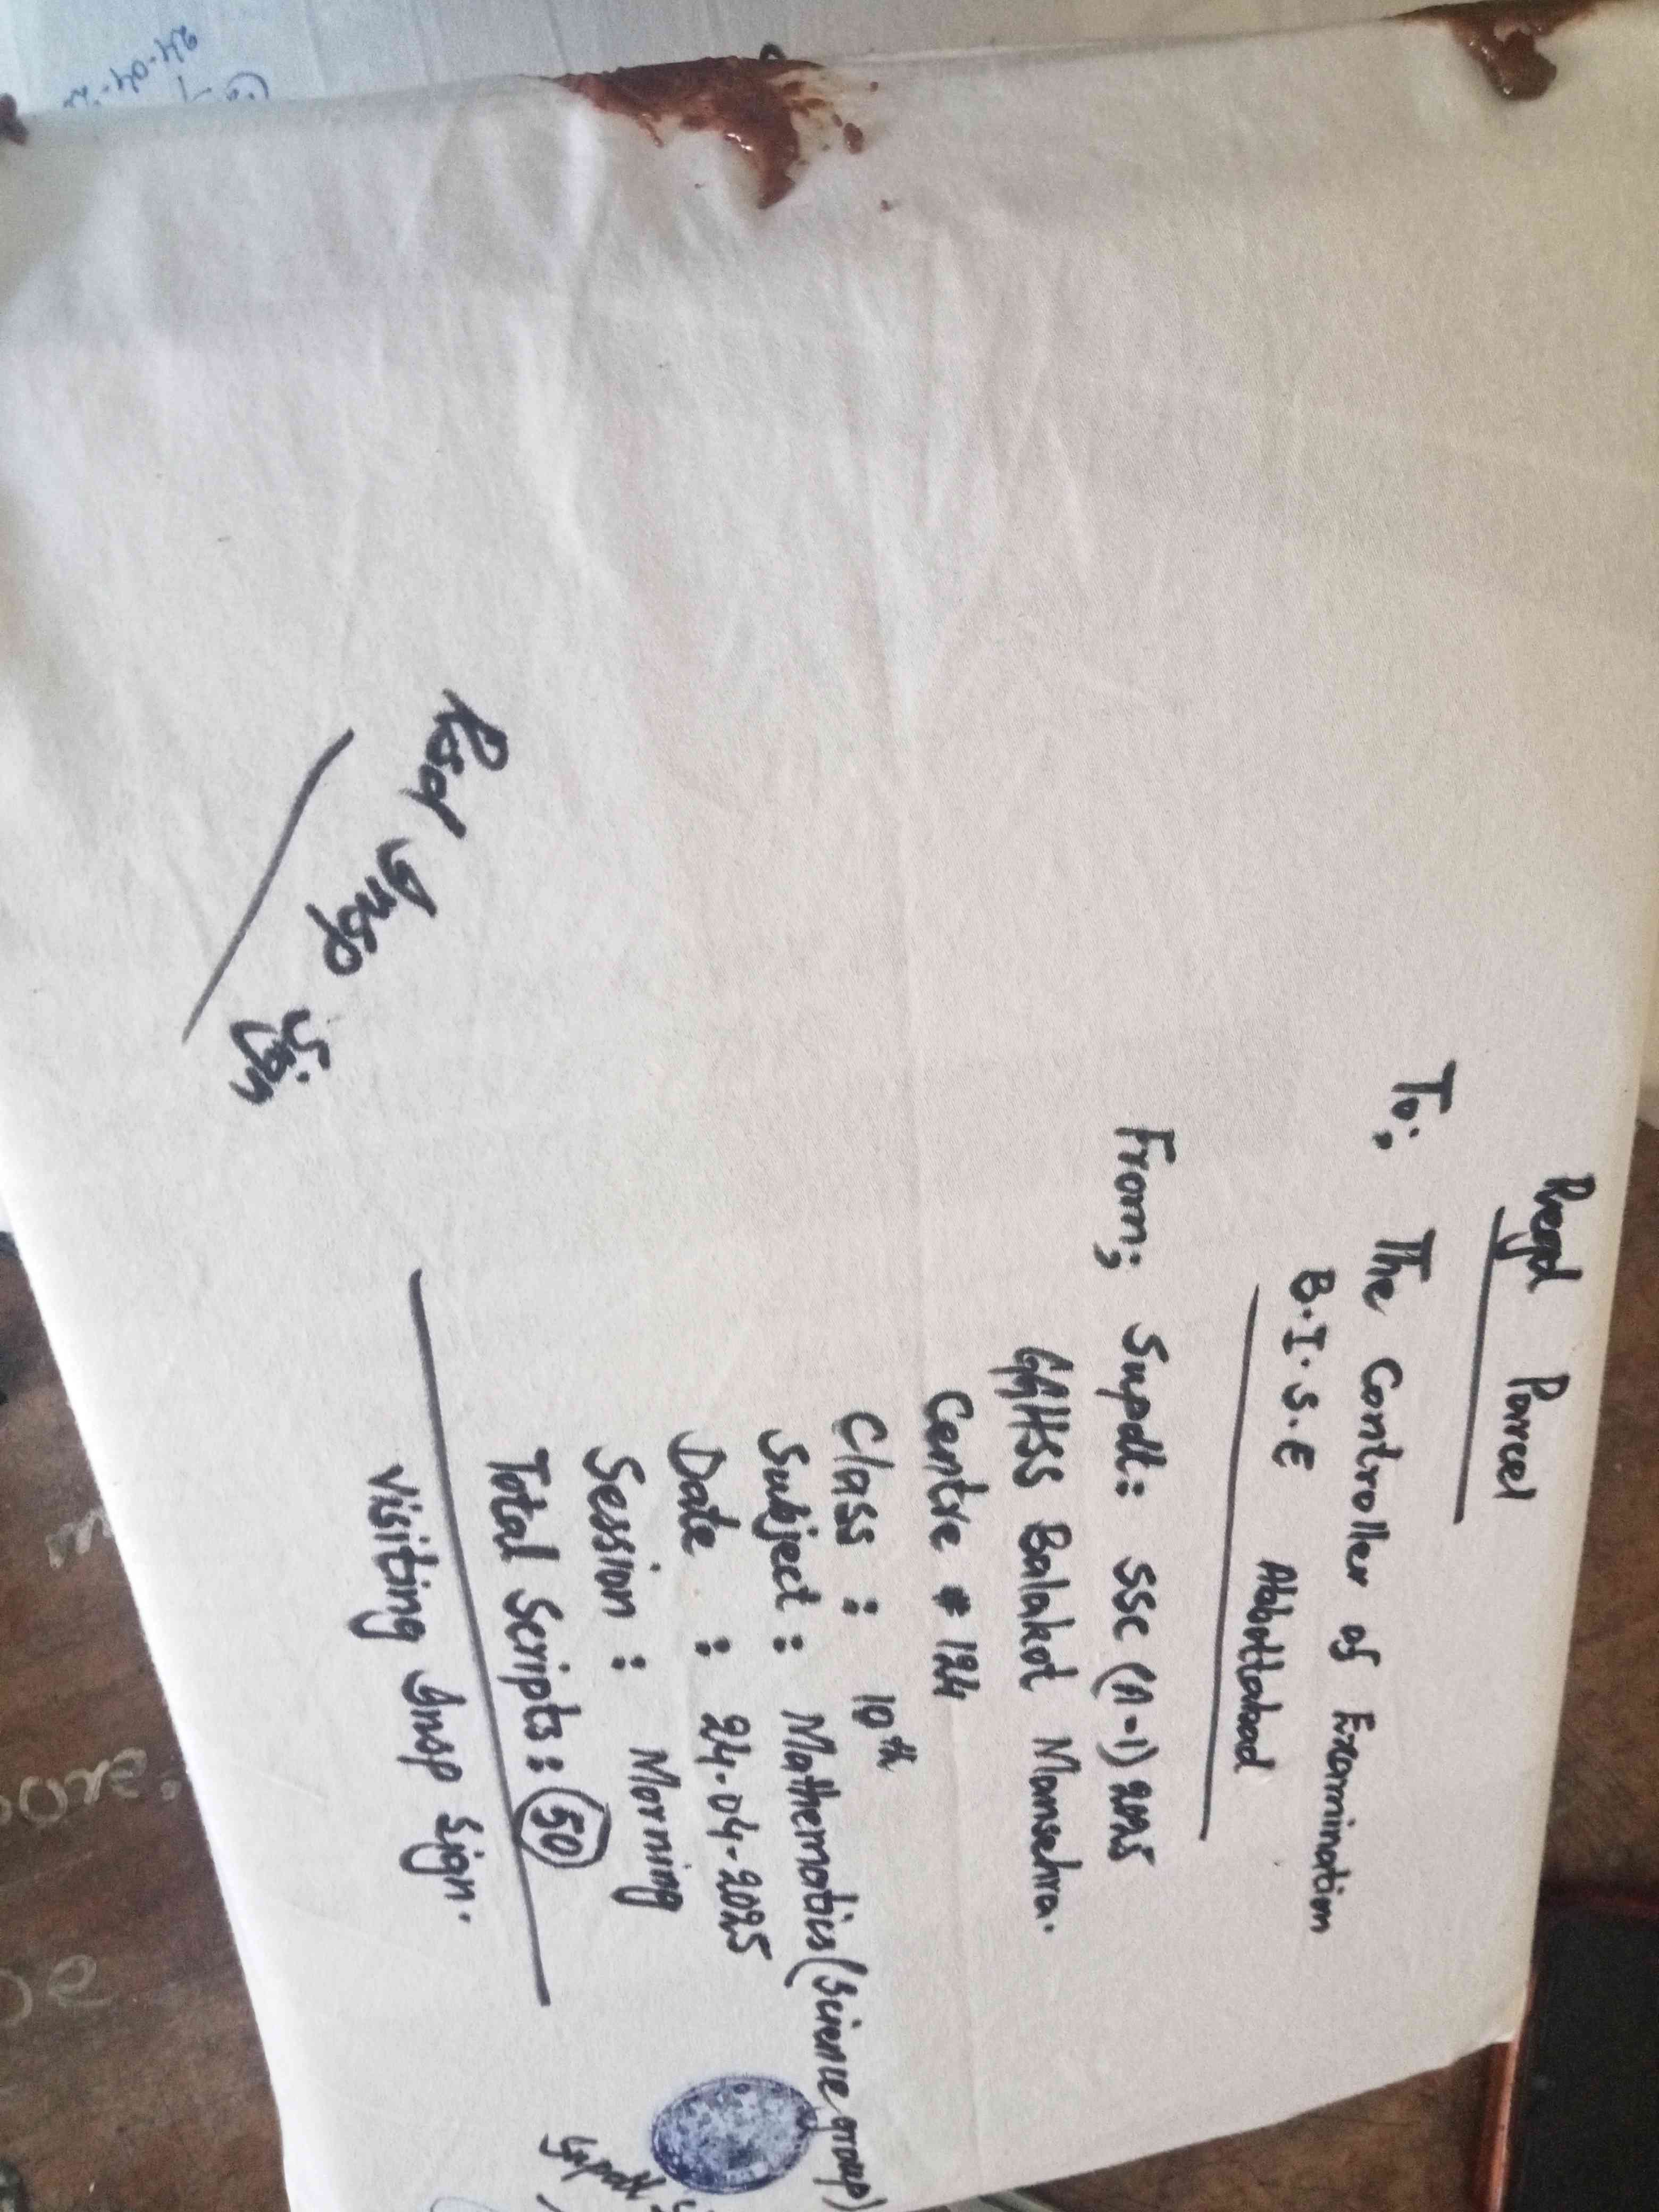 Regd Parcel
To; The Controller of Examination
B.I.S.E Abbottabad
From; Supdt: SSC (A-1) 2025
GGHSS Balakot Mansehra.
Centre # 124
Class : 10th
Subject : Mathematics (Science group)
Date : 24-04-2025
Session : Morning
Total Scripts : 50
Visiting Insp Sign.
Resd Insp Sign